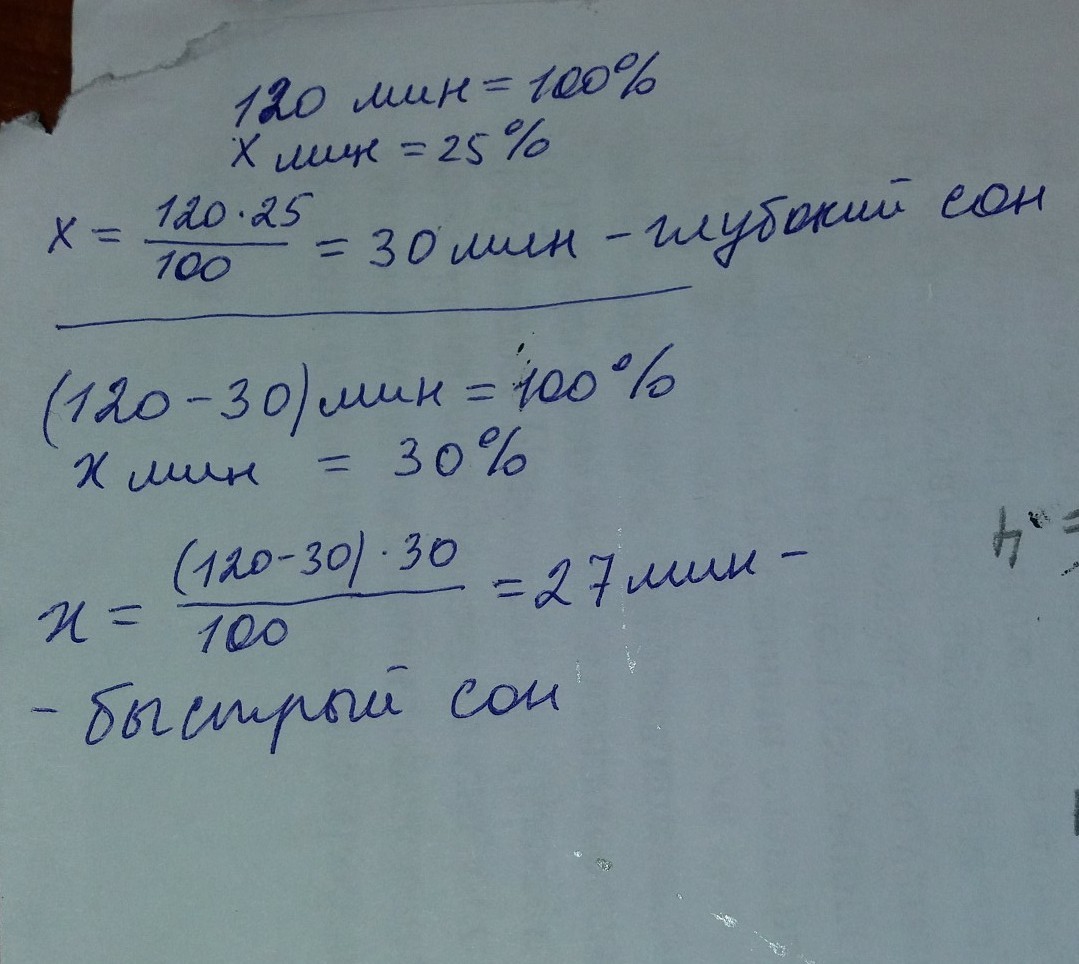 120 мин = 100%
x мин = 25%
x = 120·25/100 = 30 мин – глубокий сон
(120-30) мин = 100%
x мин = 30%
x = (120-30)·30/100 = 27 мин –
– быстрый сон